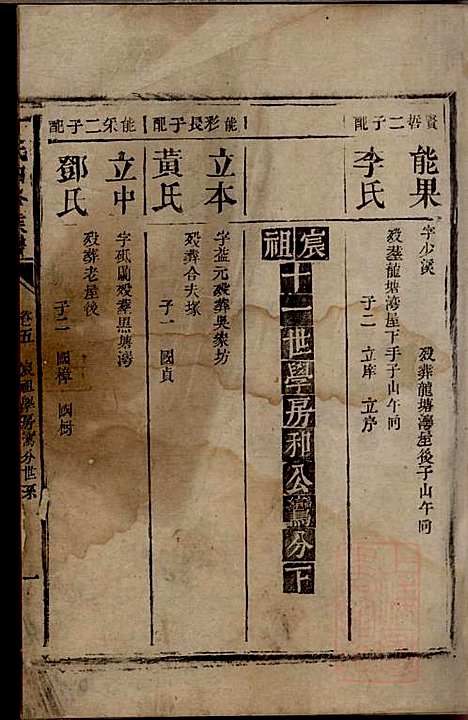 賢哲二子配
能果
字少溪 歿葬龍塘灣屋後子山午向
李氏
歿葬龍塘灣屋下手子山午向
子二 立庠 立序
宸祖十一世學房和公鸞分下
能彩長子配
立本
字益元歿葬吳家坊
黃氏
歿葬合夫塚
子一 國貞
能采二子配
立中
字砥蘭歿葬黑塘灣
鄧氏
歿葬老屋後
子二 國樟 國樹
卷五 宸祖學房鸞分世系 一